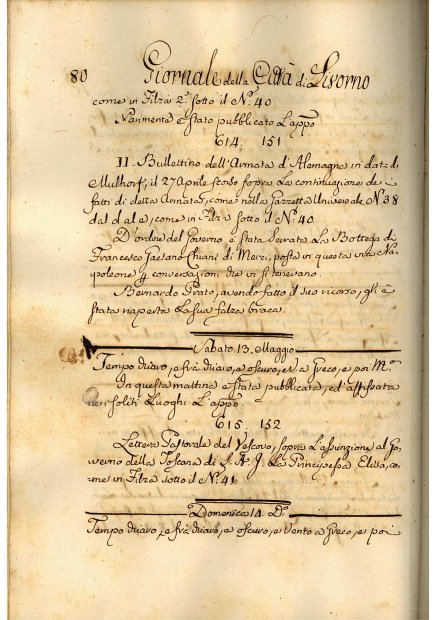 80 Giornale della Città di Livorno
come in Filza 2.ª sotto il N.º 40
Parimente è stato pubblicato L'app.º
614. 151
II. Bullettino dell'Armata d'Alemagna in data di
Mulhorf, il 27 Aprile scorso sopra La continuazione de i
fatti di detta Armata, come nella Gazzetta Universale N.º 38
dal d al e, come in Filza sotto il N.º 40.
D'ordine del Governo è stata serrata La Bottega di
Francesco Gaetano Chiari di Merci, posta in questa via Na-
poleone p conversazioni che vi si tenevano.
Bernardo Prato, avendo fatto il suo ricorso, gli è
stata riaperta La sua falza braca.
Sabato 13. Maggio
Tempo chiaro, e frà chiaro, e oscuro, e V.a Greco, e poi M.º
In questa mattina è stata pubblicata, ed affissata
ne i soliti Luoghi L'app.ª
615. 152
Lettera Pastorale del Vescovo, sopra L'assunzione al Go-
verno della Toscana di S. A. I. La Principessa Elisa, co-
me in Filza sotto il N.º 41.
Domenica 14. D.º
Tempo chiaro, e frà chiaro, e oscuro, e Vento a Greco, e poi